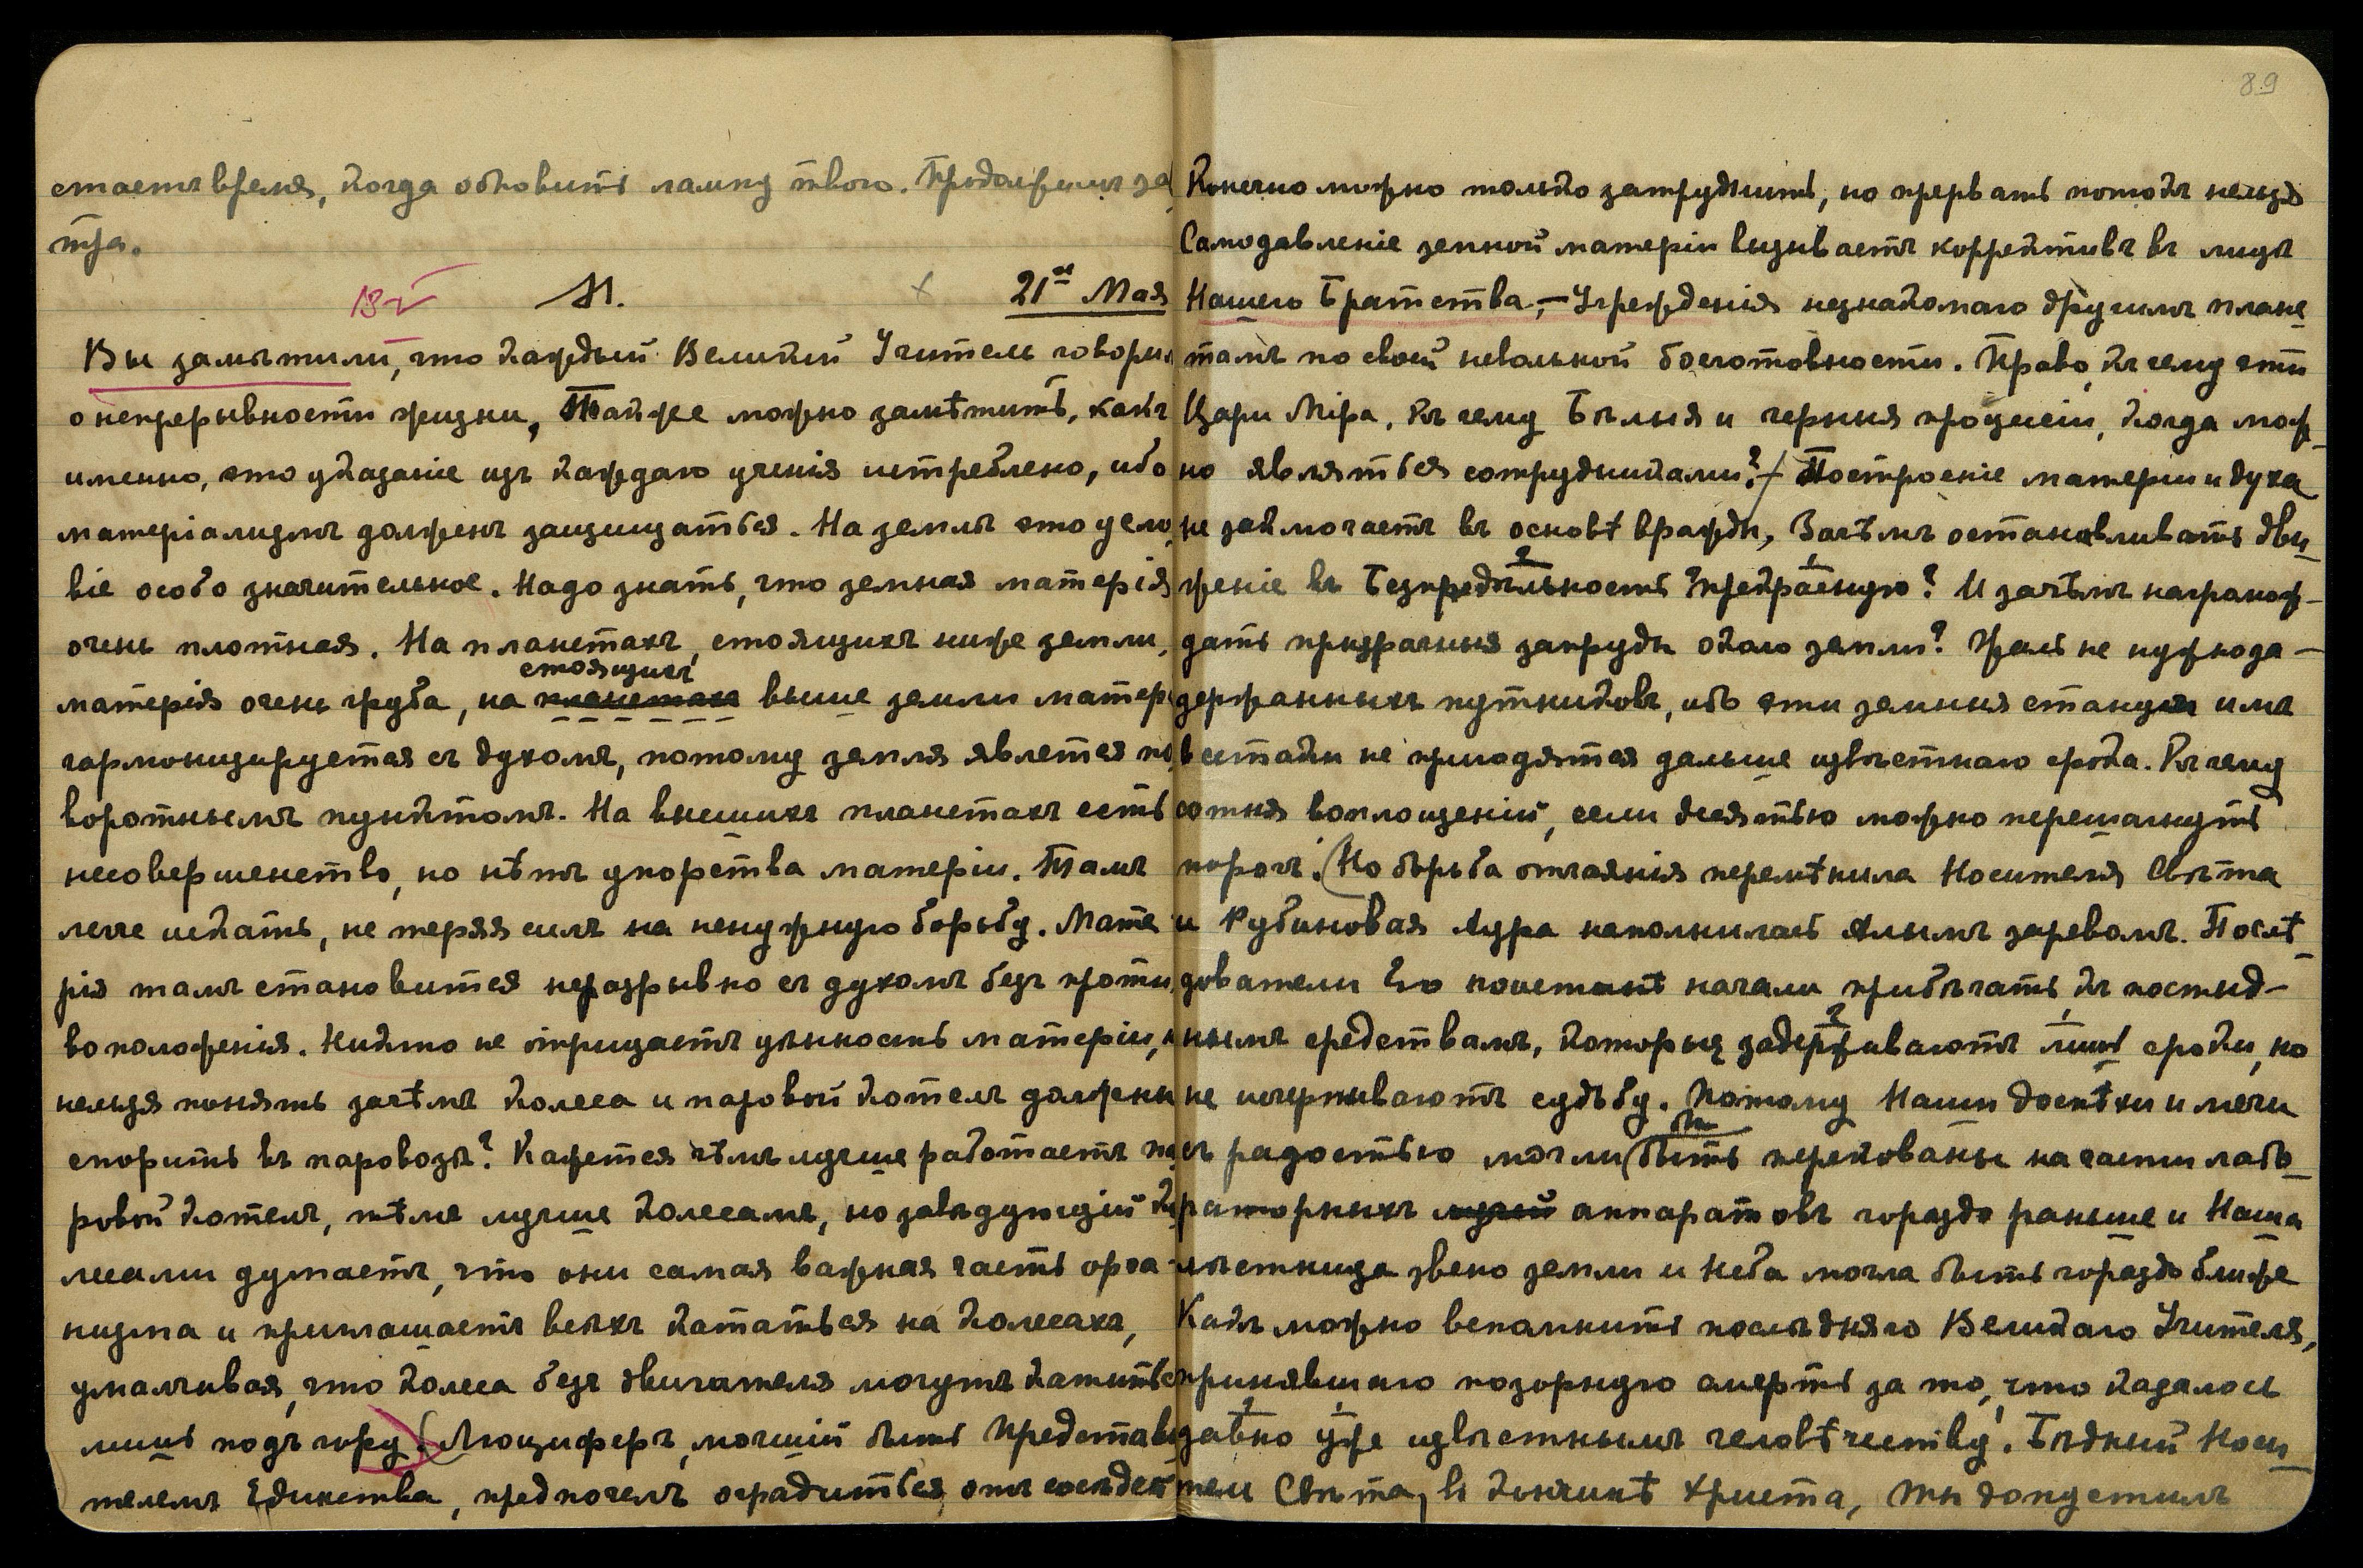 стаетъ время, когда обновить лампу твою. Продолжимъ за
тра.
182 М. × 21го Мая
Вы замѣтили, что каждый Великій Учитель говори
о непрерывности жизни, Также можно замѣтить, какъ
именно, это указаніе изъ каждаго ученія истреблено, ибо
матеріализмъ долженъ защищаться. На землѣ это усло
віе особо значительное. Надо знать, что земная матерія
очень плотная. На планетахъ, стоящихъ ниже земли,
стоящихъ
матерія очень груба, на планетахъ выше земли матер
гармонизируется съ духомъ, потому земля является по
воротнымъ пунктомъ. На высшихъ планетахъ есть
несовершенство, но нѣтъ упорства матеріи. Тамъ
легче искать, не теряя силъ на ненужную борьбу. Мате
рія тамъ становится неразрывно съ духомъ безъ проти
воположенія. Никто не отрицаетъ цѣнность матеріи,
нельзя понять зачѣмъ колеса и паровой котелъ должны
спорить въ паровозѣ? Кажется чѣмъ лучше работаетъ па
ровой котелъ, тѣмъ лучше колесамъ, но завѣдующій ко
лесами думаетъ, что они самая важная часть орга-
низма и приглашаетъ всѣхъ кататься на колесахъ,
умалчивая, что колеса безъ двигателя могутъ катиться
лишь подъ гору. (Люцифоръ, могшій быть Представи
телемъ Единства, предпочелъ оградиться отъ сосѣдей
89
Конечно можно только затруднить, но прервать потокъ нельзя
Самодавленіе земной матеріи вызываетъ коррективъ въ лицѣ
Нашего Братства, – Учрежденія незнакомаго другимъ плане
тамъ по своей невольной боеготовности. Право, къ чему эти
Цари Міра, къ чему Бѣлыя и черныя процессіи, когда мож
но являться сотрудниками? Построеніе матеріи и духа
не заключаетъ въ основѣ вражды, Зачѣмъ останавливать дви
2 1
женіе въ Безпредѣльность Прекрасную? И зачѣмъ награмож-
дать призрачныя запруды около земли? Жаль не нужно за-
держанныхъ путниковъ, ибо эти земныя станціи имъ
всетаки не пригодятся дальше извѣстнаго срока. Къ чему
сотня воплощеній, если десятью можно перешагнуть
порогъ. (Но борьба отчаянія перемѣнила Носителя Свѣта
и Рубиновая Аура наполнилась Алымъ заревомъ. Послѣ
дователи Его поистинѣ начали прибѣгать къ постыд-
2 1
нымъ средствамъ, которыя задерживаютъ лишь сроки, но
не исчерпываютъ судьбу. Потому Наши доспѣхи и мечи
бы
съ радостью могли (быть перекованы на части лабо
раторныхъ аппаратовъ гораздо раньше и Наша
лѣстница звено земли и неба могла быть гораздо ближе
Какъ можно вспомнить послѣдняго Великаго Учителя,
принявшаго позорную смерть за то, что казалось
2 1
давно уже извѣстнымъ человѣчеству! Бѣдный Носи
тель Свѣта, въ кончинѣ Христа, ты допустилъ